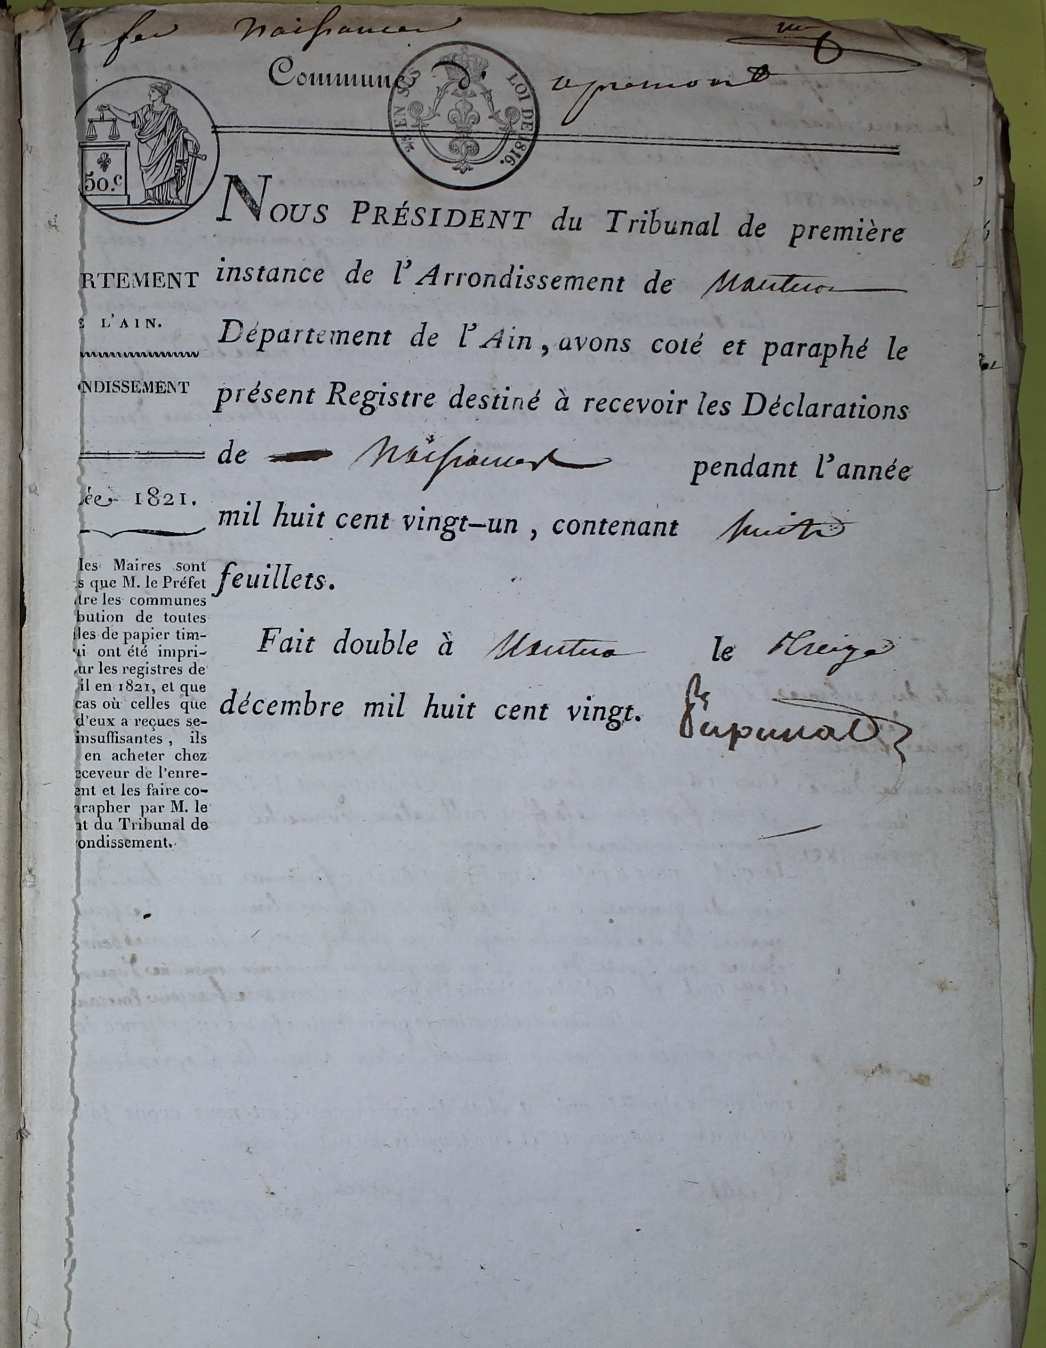 naissances
Commune d' apremont
EN SUS LOI DE 1816.
50.c
NOUS PRÉSIDENT du Tribunal de première
instance de l'Arrondissement de Nantua
Département de l'Ain, avons coté et paraphé le
présent Registre destiné à recevoir les Déclarations
de Naissances pendant l'année
mil huit cent vingt-un, contenant huit
feuillets.
Fait double à Nantua le treize
décembre mil huit cent vingt.
RTEMENT
L'AIN.
NDISSEMENT
ée 1821.
les Maires sont
s que M. le Préfet
tre les communes
bution de toutes
les de papier tim-
i ont été impri-
ur les registres de
il en 1821, et que
cas où celles que
d'eux a reçues se-
insuffisantes, ils
en acheter chez
eceveur de l'enre-
ent et les faire co-
arapher par M. le
nt du Tribunal de
ondissement.